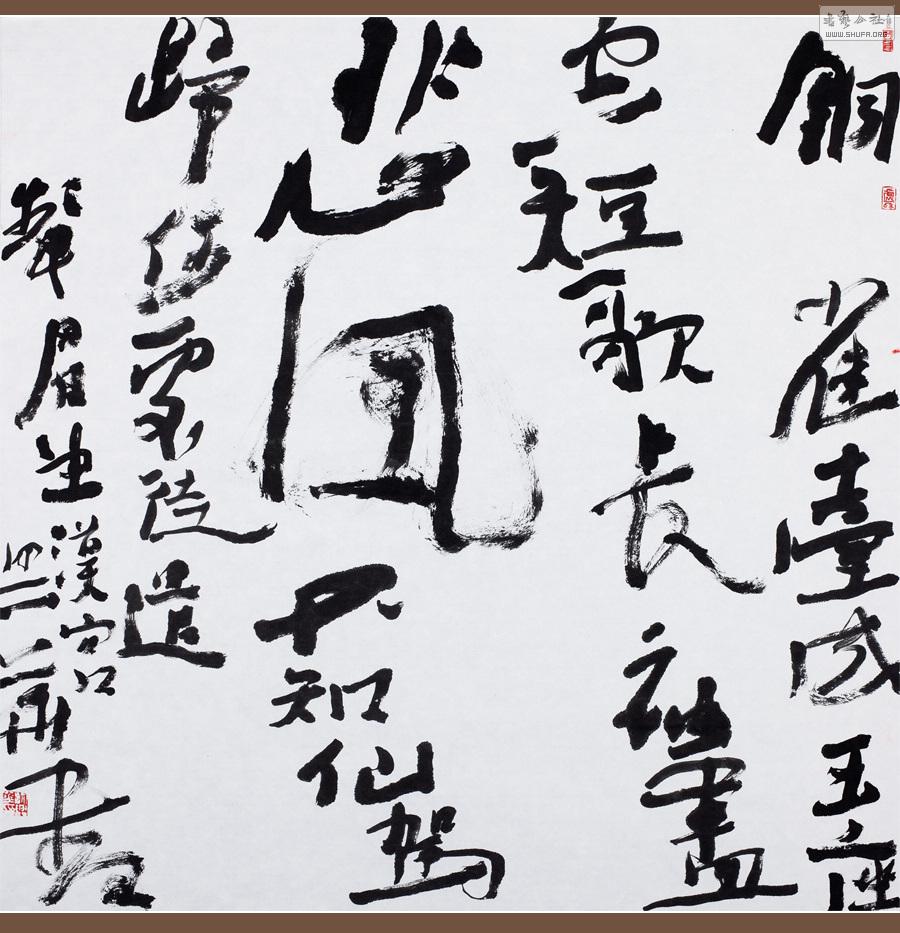 書藝公社
WWW.SHUFA.ORG
銅雀臺成玉座
空短歌長袖盡
悲風不知仙駕
歸何處徒遣
顰眉望漢宮